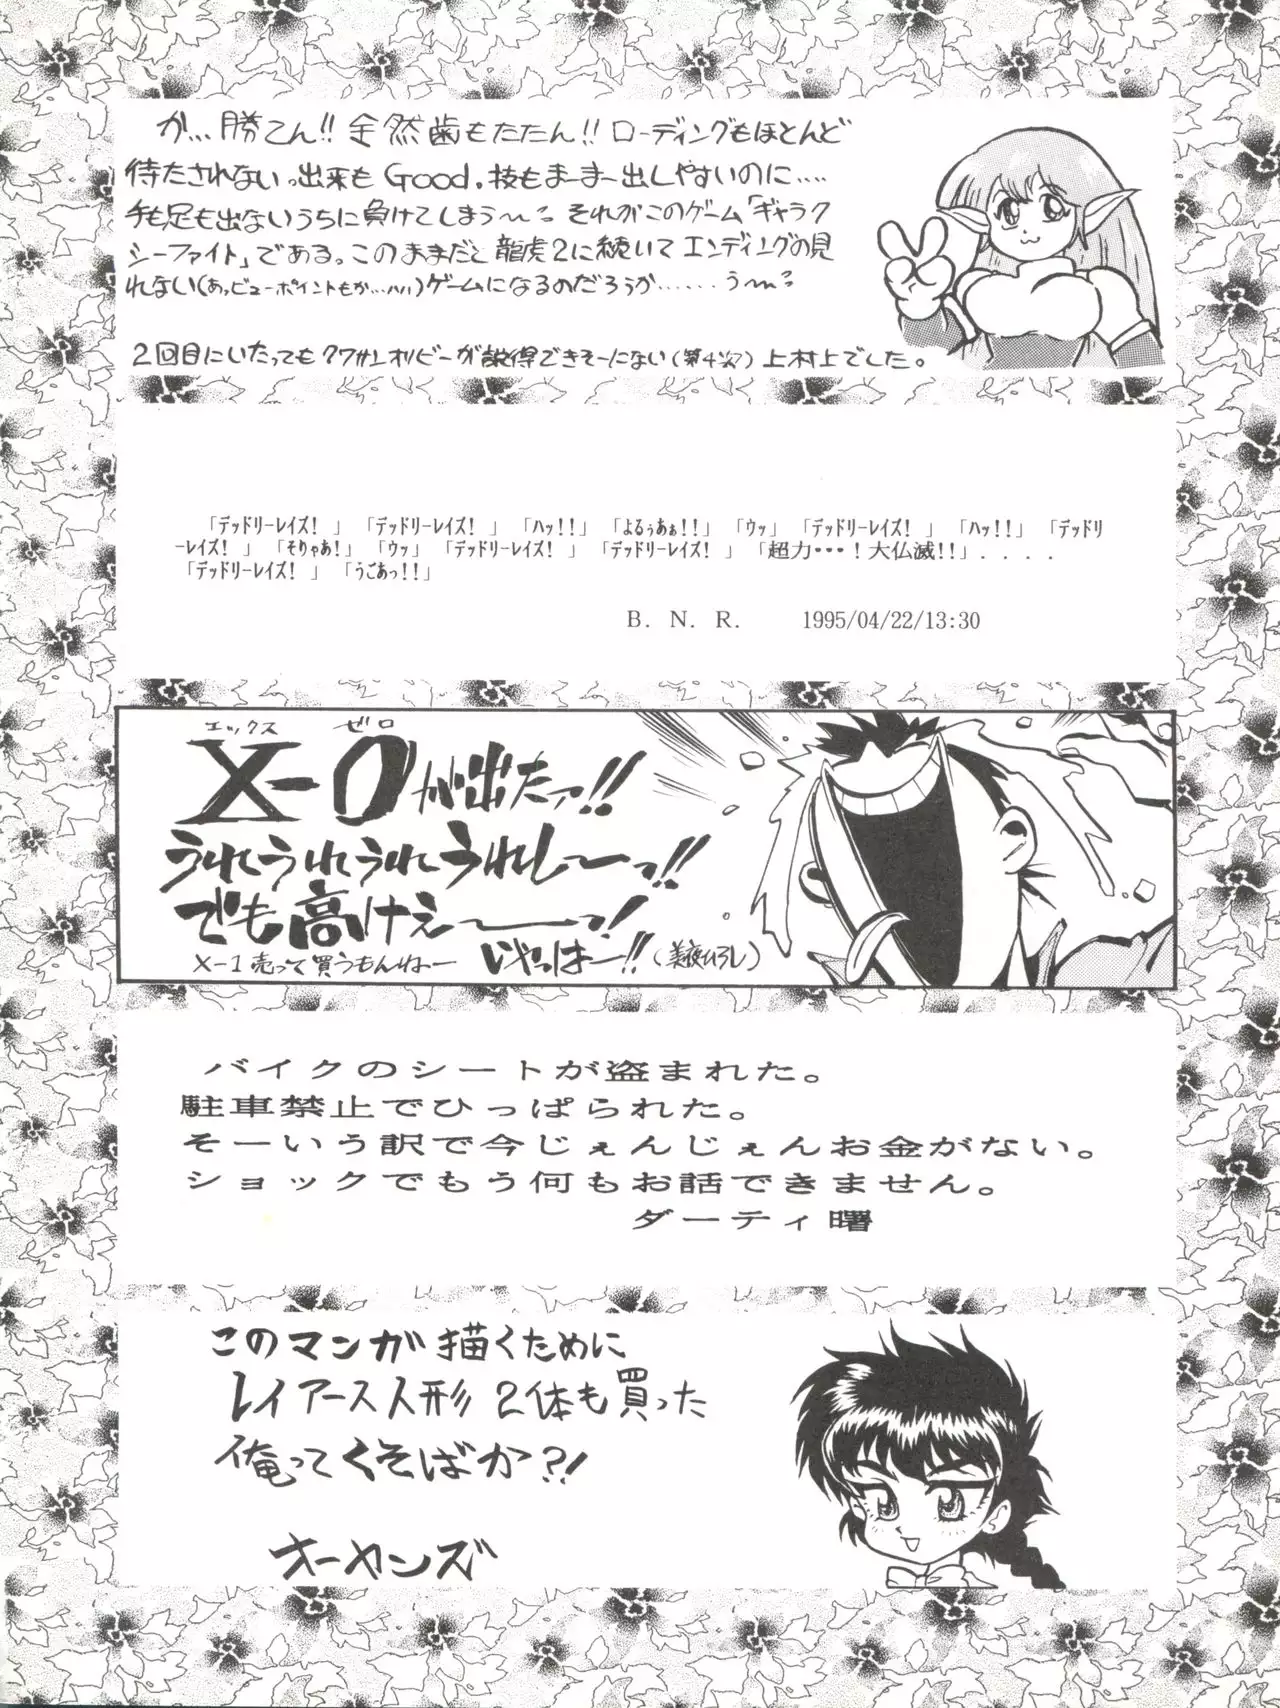 が…勝てん!!全然歯もたたん!!ローディングもほとんど
待たされないっ出来もGood.技もまーまー出しやすいのに……
手も足も出ないうちに負けてしまう〜〜 それがこのゲーム「ギャラク
シーファイト」である。このままだと龍虎2に続いてエンディングの見
れない(あっビューポイントもか…ハハ)ゲームになるのだろうか……う〜〜
2回目にいたってもクワサンオリビーが説得できそーにない(第4次)上村上でした。
「デッドリーレイズ! 」「デッドリーレイズ! 」「ハッ!!」「よるぅあぁ!!」「ウッ」「デッドリーレイズ! 」「ハッ!!」「デッドリ
ーレイズ! 」「そりゃあ!」「ウッ」「デッドリーレイズ! 」「デッドリーレイズ! 」「超力・・・!大仏滅!!」....
「デッドリーレイズ! 」「うごあっ!!」
B. N. R. 1995/04/22/13:30
エックス ゼロ
X-0が出たァッ!!
うれうれうれうれしーーっ!!
でも高けえーーっ!
X-1売って買うもんねー いやっはー!!(美夜ひろし)
バイクのシートが盗まれた。
駐車禁止でひっぱられた。
そーいう訳で今じぇんじぇんお金がない。
ショックでもう何もお話できません。
ダーティ曙
このマンガ描くために
レイアース人形2体も買った
俺ってくそばか?!
オーカンズ